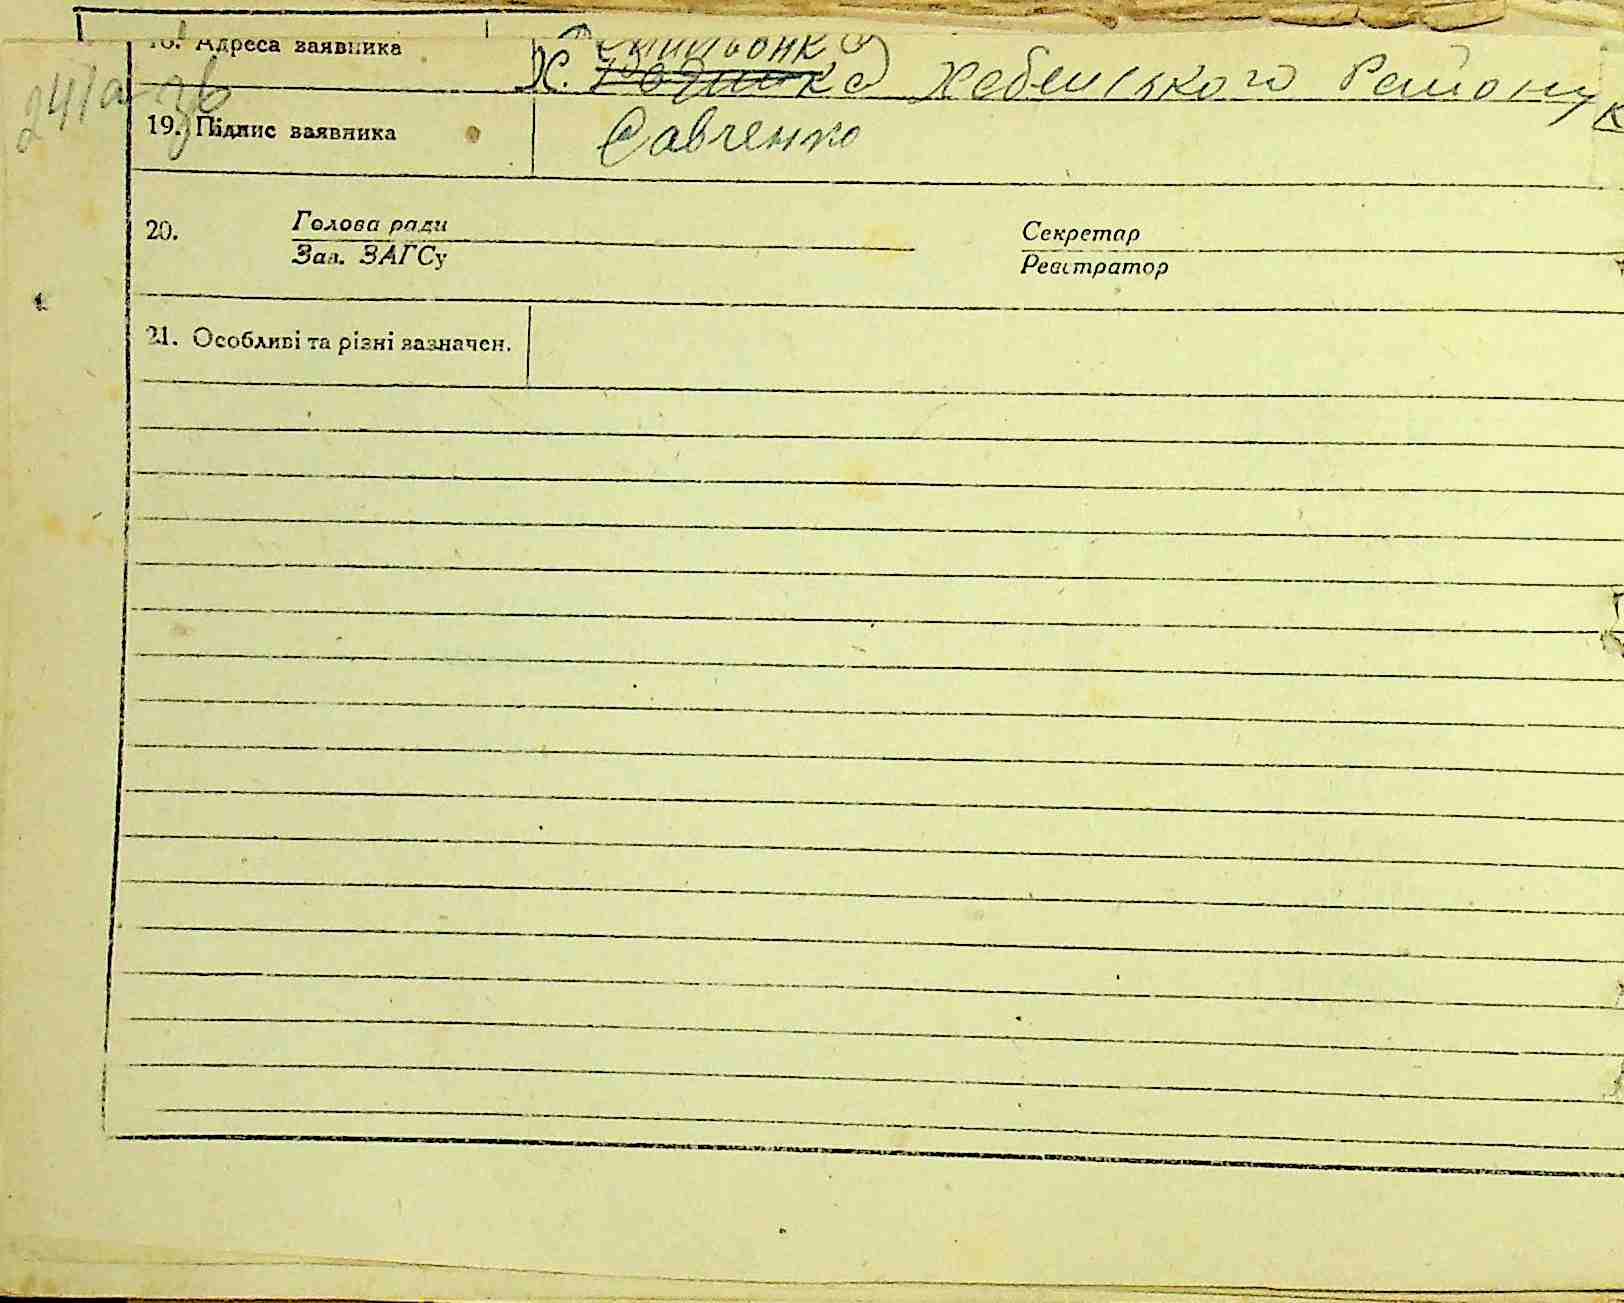 18. Адреса заявника х. Хабенського Району
241а зв
19. Підпис заявника Савченко
20. Голова ради Секретар
Зав. ЗАГСу Реєстратор
21. Особливі та різні зазначен.